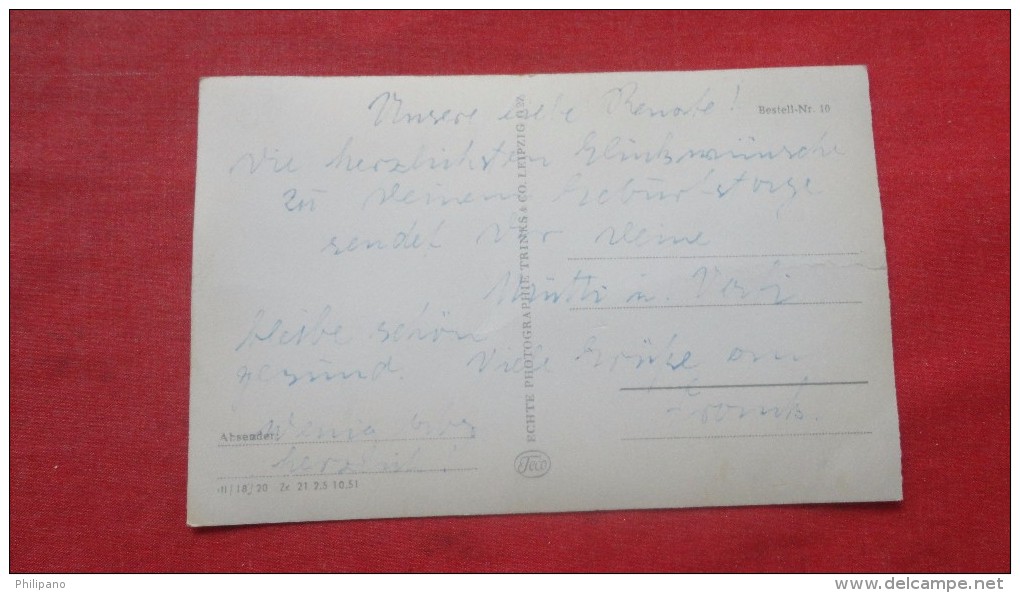 Unsere liebe Renate!
Bestell-Nr. 10
Die herzlichsten Glückwünsche
zu Deinem Geburtstage
sendet Dir Deine
Mutti u. Vati
bleibe schön
gesund. Viele Grüße an
Frank.
Absender:
herzlich!
III/18/20 Zr. 21 2,5 10.51
ECHTE PHOTOGRAPHIE TRINKS & CO. LEIPZIG
Teco
Philipano
www.delcampe.net